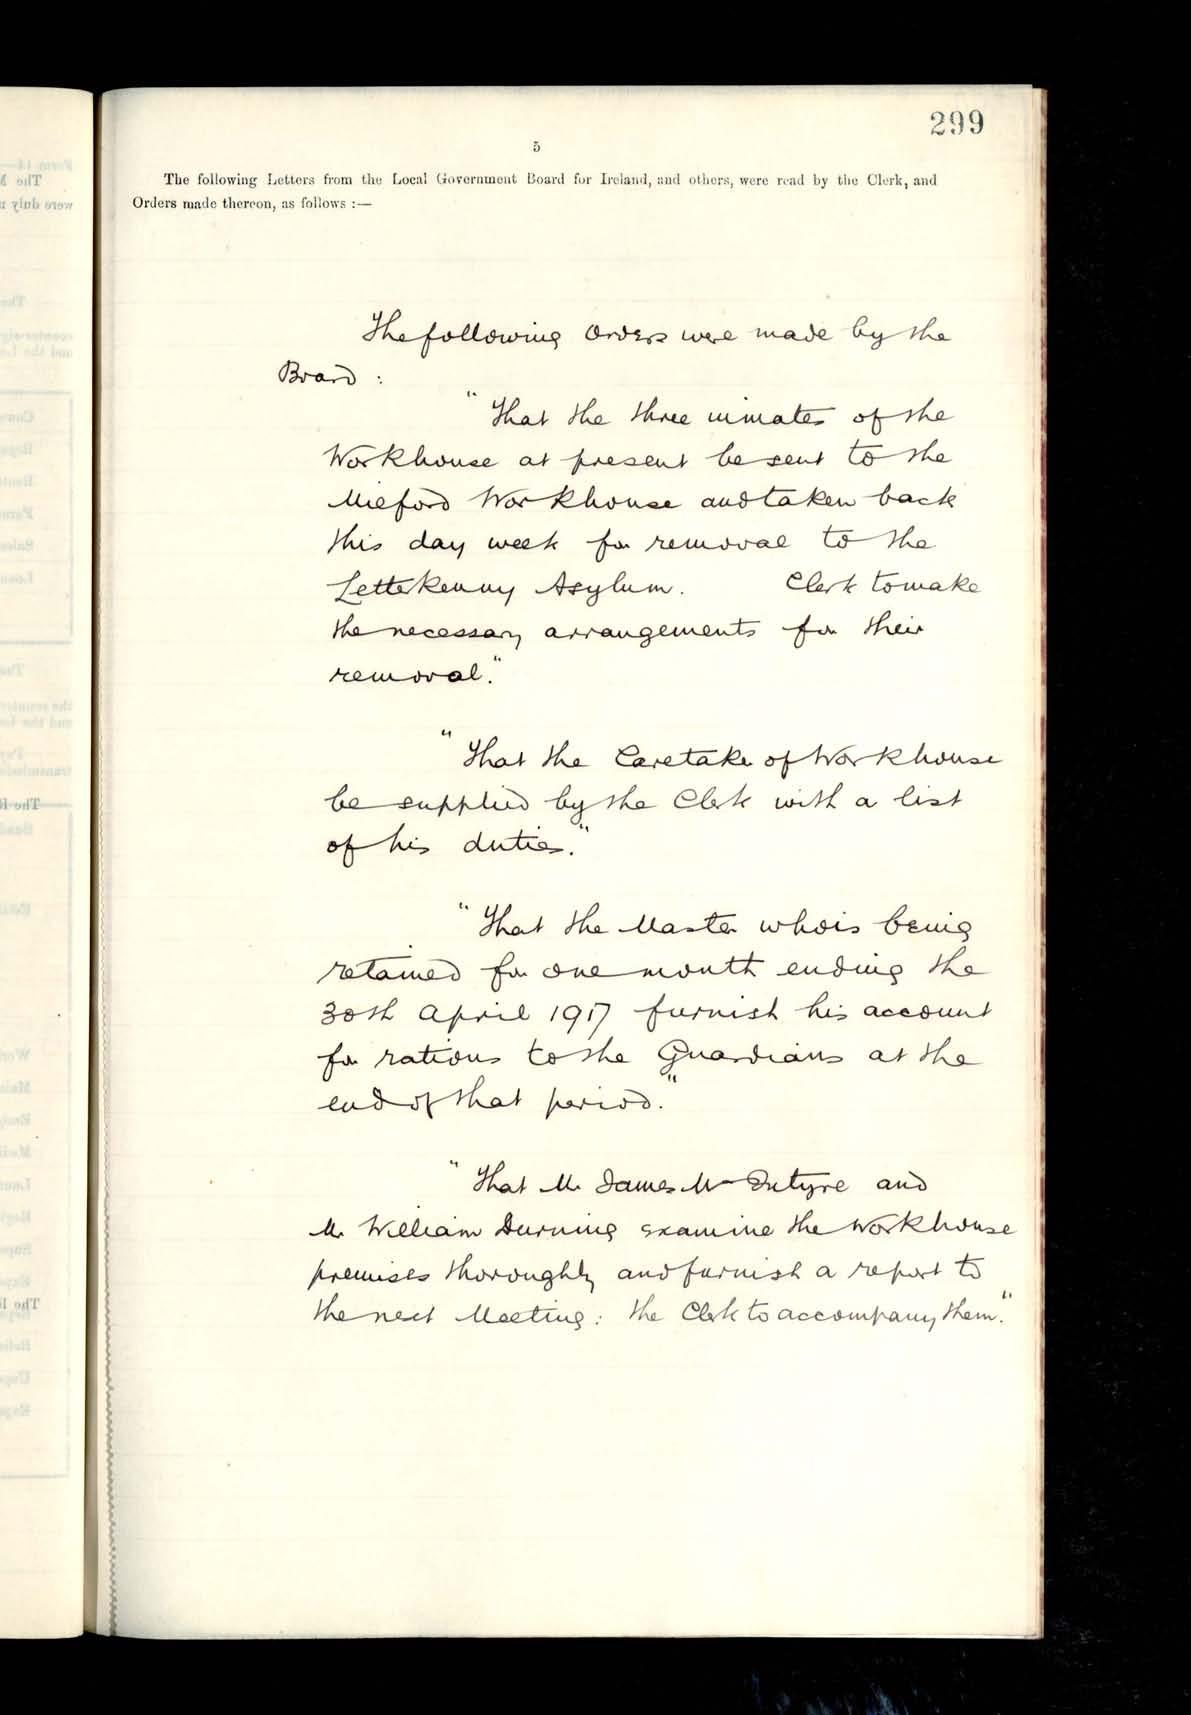 299
5
The following Letters from the Local Government Board for Ireland, and others, were read by the Clerk, and
Orders made thereon, as follows :—
The following Orders were made by the
Board :
"That the three inmates of the
Workhouse at present be sent to the
Milford Workhouse and taken back
this day week for removal to the
Letterkenny Asylum. Clerk to make
the necessary arrangements for their
removal."
"That the Caretaker of Workhouse
be supplied by the Clerk with a list
of his duties."
"That the Master who is being
retained for one month ending the
30th April 1917 furnish his account
for rations to the Guardians at the
end of that period."
"That Mr James McIntyre and
Mr William Durning examine the Workhouse
premises thoroughly and furnish a report to
the next Meeting: the Clerk to accompany them."